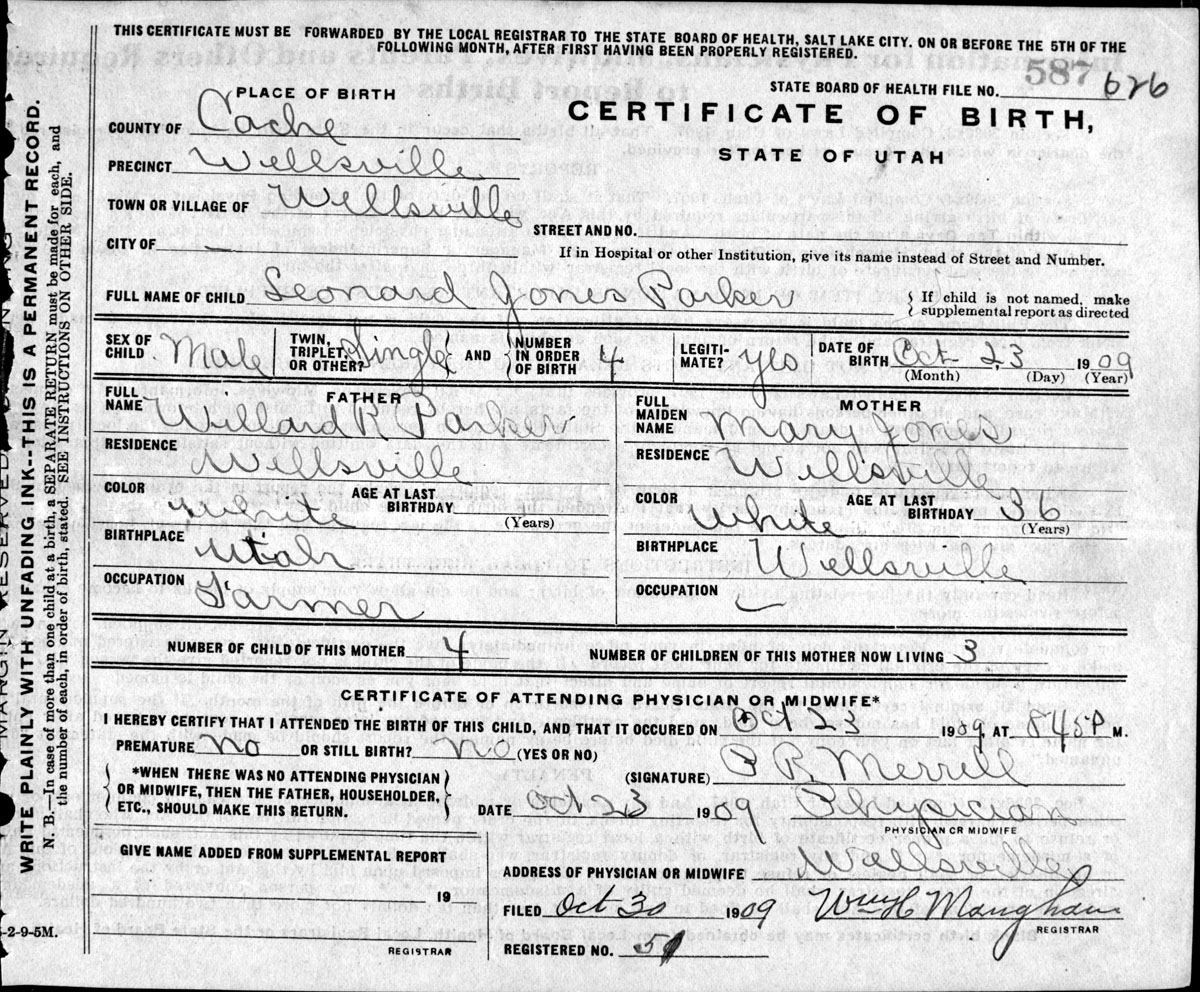 THIS CERTIFICATE MUST BE FORWARDED BY THE LOCAL REGISTRAR TO THE STATE BOARD OF HEALTH, SALT LAKE CITY, ON OR BEFORE THE 5TH OF THE
FOLLOWING MONTH, AFTER FIRST HAVING BEEN PROPERLY REGISTERED.
587
STATE BOARD OF HEALTH FILE NO. 626
PLACE OF BIRTH
CERTIFICATE OF BIRTH,
STATE OF UTAH
COUNTY OF Cache
PRECINCT Wellsville
TOWN OR VILLAGE OF Wellsville
STREET AND NO.
CITY OF —
If in Hospital or other Institution, give its name instead of Street and Number.
FULL NAME OF CHILD Leonard Jones Parker
{ If child is not named, make
supplemental report as directed
SEX OF CHILD. Male TWIN, TRIPLET, OR OTHER? Single AND { NUMBER IN ORDER OF BIRTH 4 LEGITI-MATE? yes DATE OF BIRTH Oct 23, 1909
(Month) (Day) (Year)
FATHER
FULL NAME Willard R Parker
RESIDENCE Wellsville
COLOR White AGE AT LAST BIRTHDAY
(Years)
BIRTHPLACE Utah
OCCUPATION Farmer
MOTHER
FULL MAIDEN NAME Mary Jones
RESIDENCE Wellsville
COLOR White AGE AT LAST BIRTHDAY 36
(Years)
BIRTHPLACE Wellsville
OCCUPATION —
NUMBER OF CHILD OF THIS MOTHER 4 NUMBER OF CHILDREN OF THIS MOTHER NOW LIVING 3
CERTIFICATE OF ATTENDING PHYSICIAN OR MIDWIFE*
I HEREBY CERTIFY THAT I ATTENDED THE BIRTH OF THIS CHILD, AND THAT IT OCCURED ON Oct 23 1909, AT 845 P M.
PREMATURE no OR STILL BIRTH? no (YES OR NO)
*WHEN THERE WAS NO ATTENDING PHYSICIAN
OR MIDWIFE, THEN THE FATHER, HOUSEHOLDER,
ETC., SHOULD MAKE THIS RETURN.
(SIGNATURE) R Merrell
DATE Oct 23 1909 Physician
PHYSICIAN OR MIDWIFE
GIVE NAME ADDED FROM SUPPLEMENTAL REPORT
19
REGISTRAR
ADDRESS OF PHYSICIAN OR MIDWIFE Wellsville
FILED Oct 30 1909 Wm H Maughan
REGISTRAR
REGISTERED NO.
MARGIN RESERVED BINDING
WRITE PLAINLY WITH UNFADING INK--THIS IS A PERMANENT RECORD.
N. B.—In case of more than one child at a birth, a SEPARATE RETURN must be made for each, and
the number of each, in order of birth, stated. SEE INSTRUCTIONS ON OTHER SIDE.
5-2-9-5M.